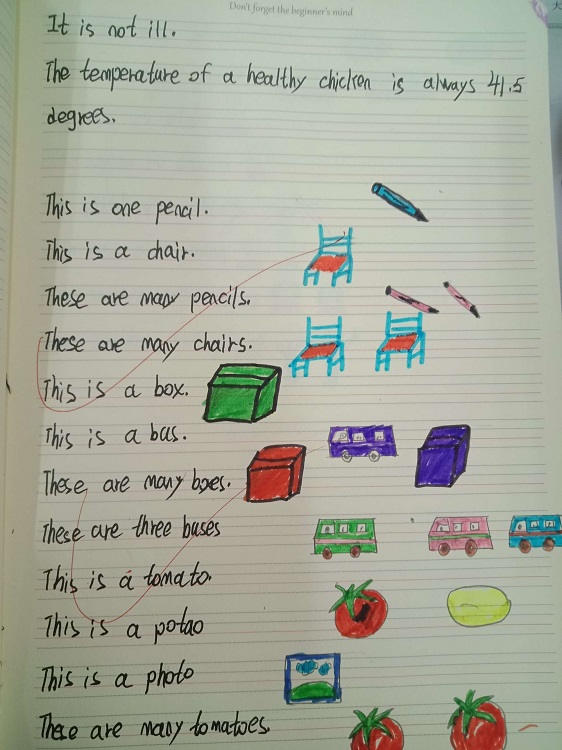 Don't forget the beginner's mind
It is not ill.
The temperature of a healthy chicken is always 41.5
degrees.
This is one pencil.
This is a chair.
These are many pencils.
These are many chairs.
This is a box.
This is a bus.
These are many boxes.
These are three buses
This is a tomato.
This is a potao
This is a photo
These are many tomatoes.